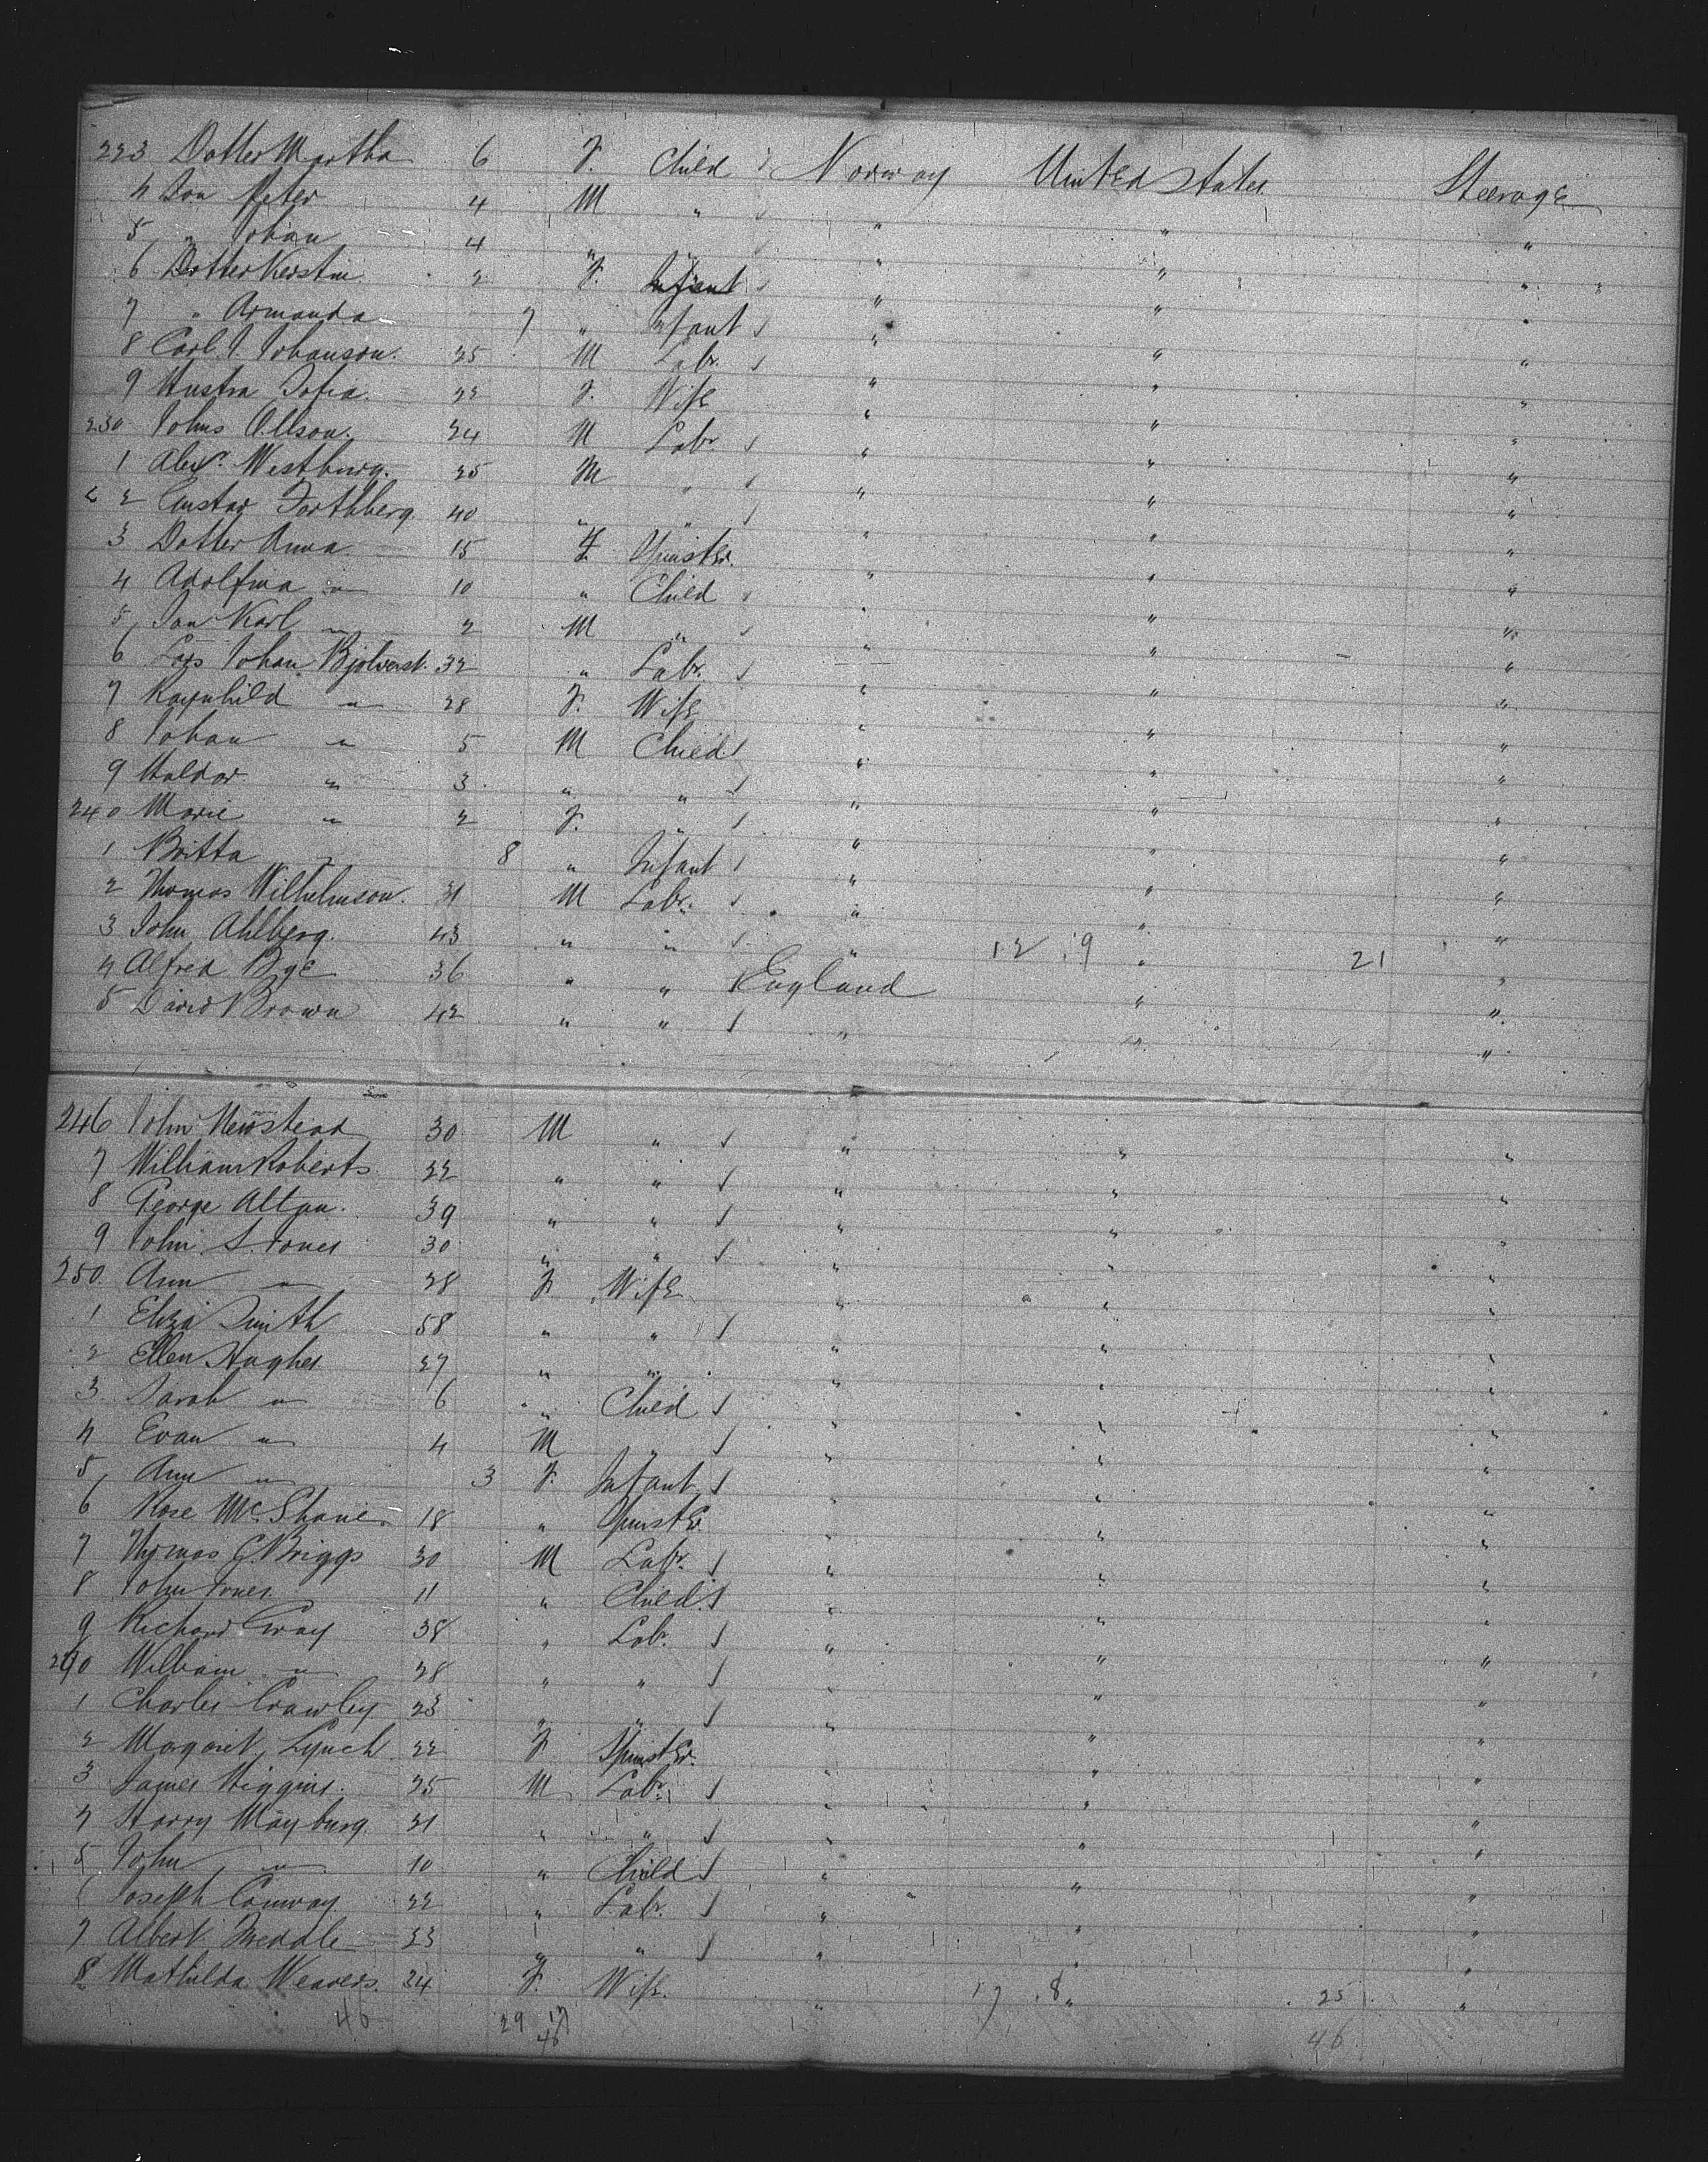 223 Dotter Martha 6 F. Child Norway United States Steerage
4 Son Peter 4 M " " " "
5 " Johan 4 " " " " "
6 Dotter Kerstin 2 F. Infant " " "
7 " Armanda 7 " Infant " " "
8 Carl J. Johanson. 35 M Labr. " " "
9 Hustra Sofia. 22 F. Wife " " "
230 Johns Ollson. 24 M Labr. " " "
1 Alexr. Westburg. 25 M " " " "
2 Gustav Forthberg. 40 " " " " "
3 Dotter Anna 15 F Spinster. " " "
4 Adolfina " 10 " Child " " "
5 Son Karl " 2 M " " " "
6 Lars Johan Bjolverst. 32 " Labr. " " "
7 Ragnhild " 28 F. Wife " " "
8 Johan " 5 M Child " " "
9 Haldor " 3 " " " " "
240 Marie " 2 F. " " " "
1 Britta " 8 " Infant " " "
2 Thomas Wilhelmson. 31 M Labr. " " "
3 John Ahlberg. 43 " " " 12 9 " 21 "
4 Alfred Bye 36 " " England " "
5 David Brown 42 " " " " "
246 John Newstead 30 M " " " "
7 William Roberts 22 " " " " "
8 George Alton. 39 " " " " "
9 John S. Jones 30 " " " " "
250 Ann " 28 F Wife " " "
1 Eliza Smith 58 " " " " "
2 Ellen Hughes 27 " " " " "
3 Sarah " 6 " Child " " "
4 Evan " 4 M " " " "
5 Ann " 3 F. Infant " " "
6 Rose McShane 18 " Spinster " " "
7 Thomas G. Briggs 30 M Labr. " " "
8 John Jones 11 " Child " " "
9 Richard Gray 38 " Labr. " " "
260 William " 28 " " " " "
1 Charles Crawley 23 " " " " "
2 Margaret Lynch 22 F Spinster. " " "
3 James Higgins. 25 M Labr. " " "
4 Harry Mayburg. 31 " " " " "
5 John " 10 " Child " " "
6 Joseph Conway 22 " Labr. " " "
7 Albert Treddle 23 " " " " "
8 Mathilda Weavers. 24 F. Wife. " 17 8 " 25 "
46 29 17 46
46